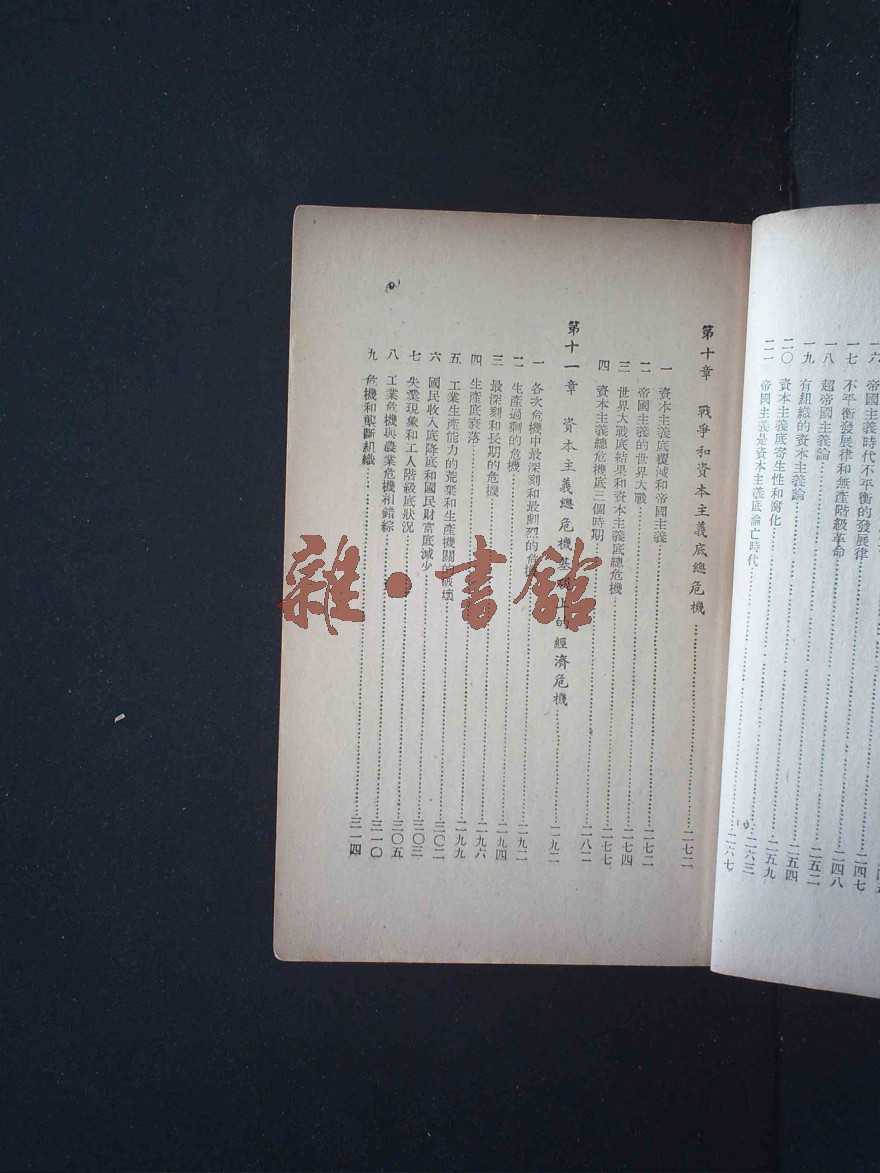 一六 帝國主義時代不平衡的發展律……二四八
一七 不平衡發展律和無產階級革命……二五二
一八 超帝國主義論……二五四
一九 有組織的資本主義論……二五九
二〇 資本主義底寄生性和腐化……二六三
二一 帝國主義是資本主義底淪亡時代……二六七
第十章 戰爭和資本主義底總危機……二七二
一 資本主義底覆滅和帝國主義……二七二
二 帝國主義的世界大戰……二七四
三 世界大戰底結果和資本主義底總危機……二七七
四 資本主義總危機底三個時期……二八二
第十一章 資本主義總危機基礎上的經濟危機……二九二
一 各次危機中最深刻和最劇烈的危機……二九二
二 生產過剩的危機……二九四
三 最深刻和長期的危機……二九六
四 生產底衰落……二九九
五 工業生產能力的荒棄和生產機關的破壞……三〇二
六 國民收入底降底和國民財富底減少……三〇三
七 失業現象和工人階級底狀況……三〇五
八 工業危機與農業危機相錯綜……三一〇
九 危機和壟斷組織……三一四
雜·書館